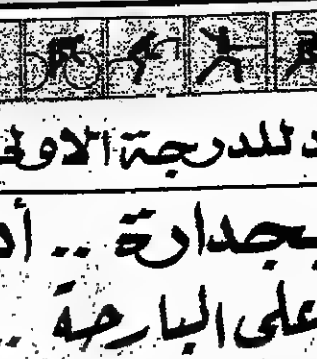 د للدرجة الاولى
بجدارة .. أ
على البارحة ..